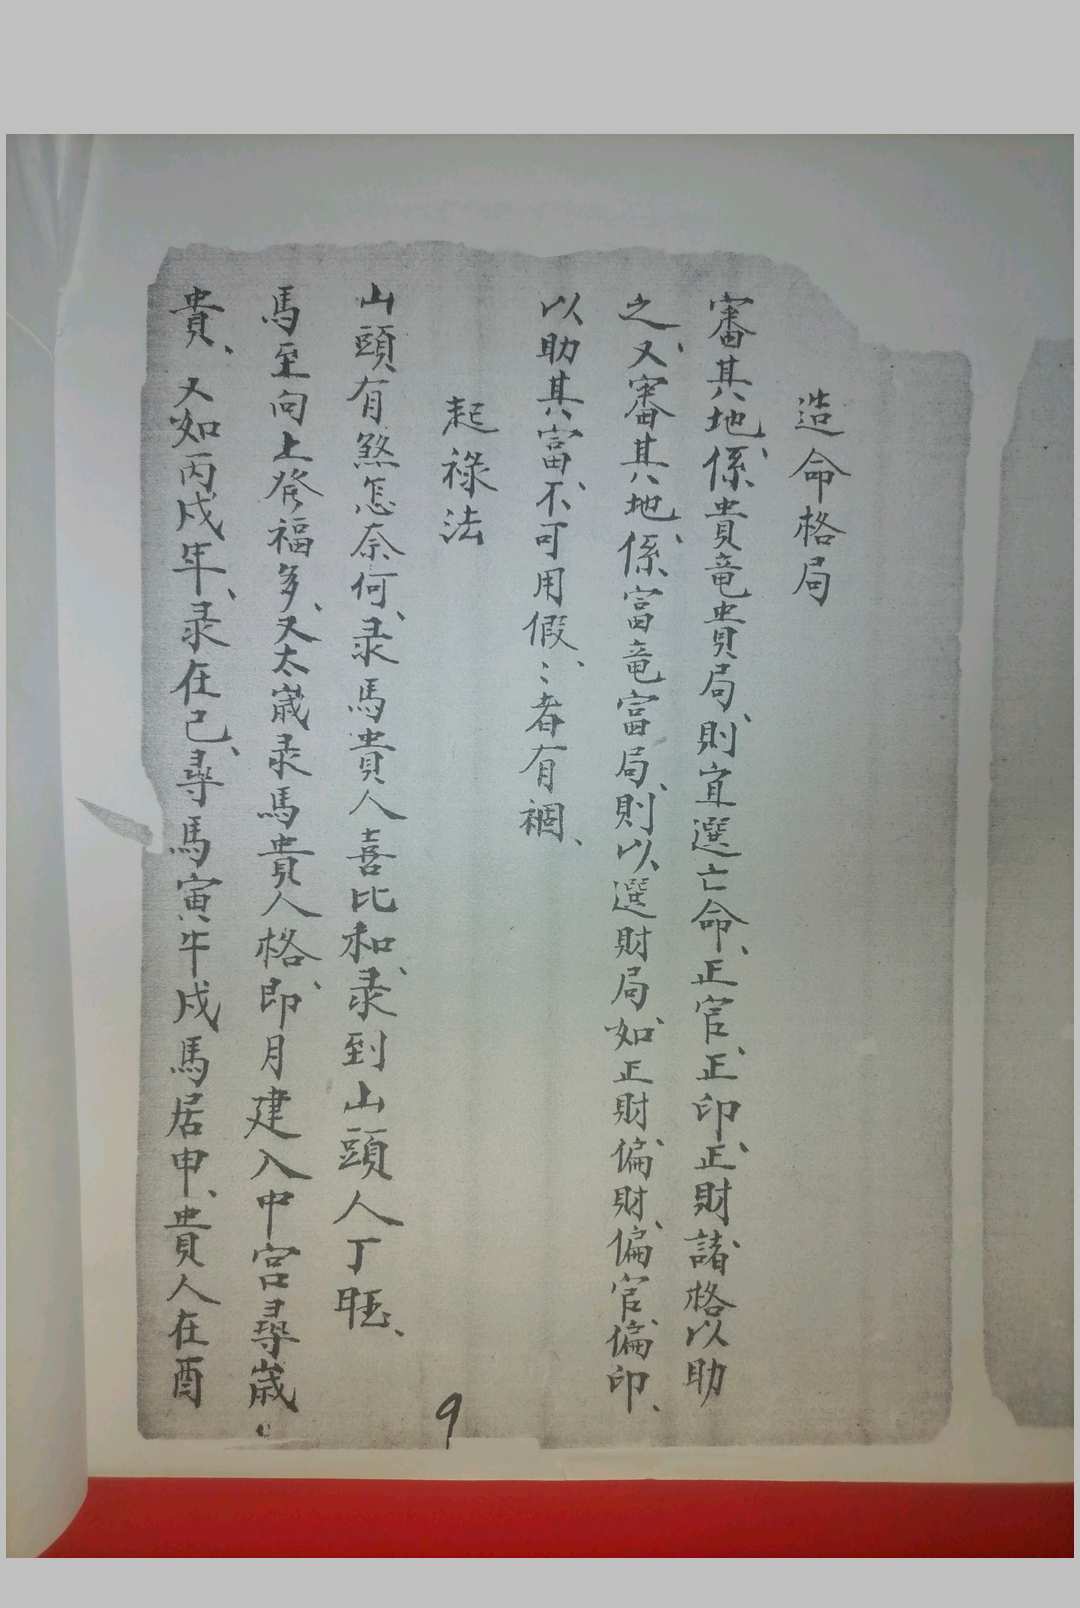 造命格局
審其地、係貴竜貴局、則宜選亡命、正官、正印、正財諸格以助
之、又審其地、係富竜富局、則以選財局如正財、偏財、偏官、偏印、
以助其富、不可用假、〻者有禍、
起祿法
山頭有煞怎奈何、彔馬貴人喜比和、彔到山頭人丁旺、
馬至向上發福多、又太歲彔馬貴人格、即月建入中宮尋歲
貴、又如丙戍年、彔在己、尋馬寅午戍馬居申、貴人在酉
9